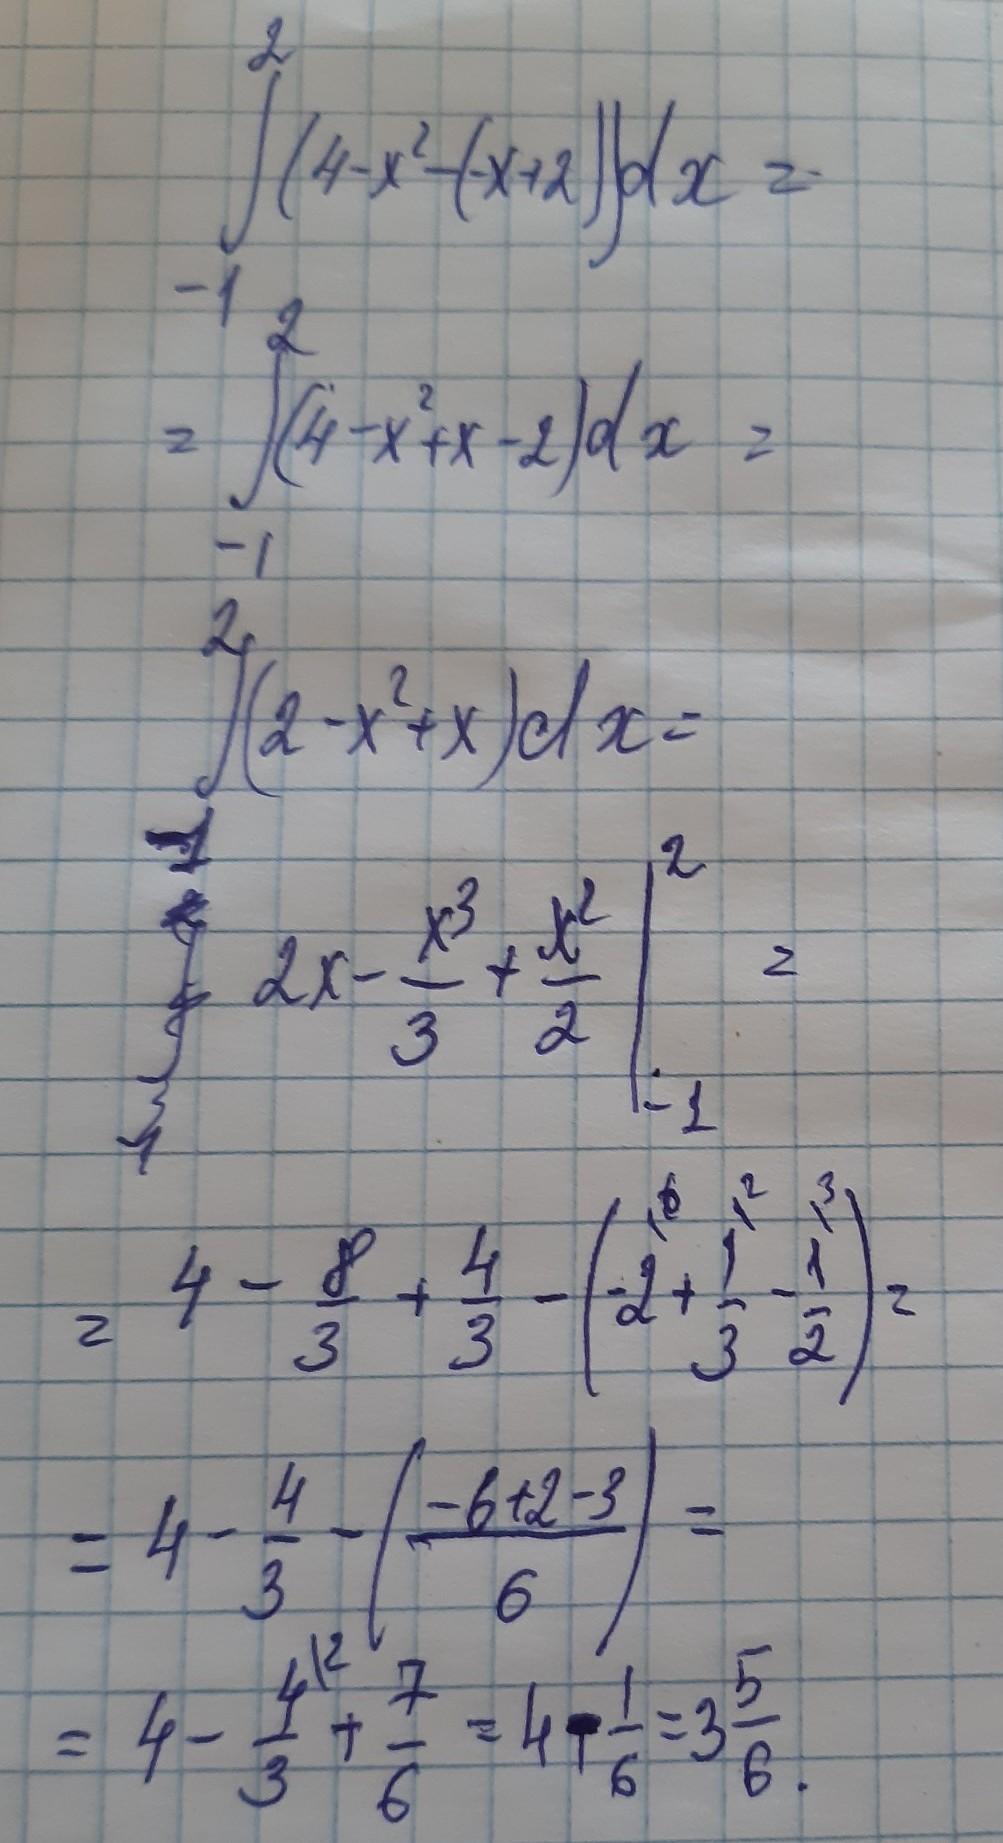 ∫₋₁² (4-x²-(-x+2))dx =
= ∫₋₁² (4-x²+x-2)dx =
∫₋₁² (2-x²+x)dx =
2x - x³/3 + x²/2 |₋₁² =
= 4 - 8/3 + 4/3 - (-2\⁶ + 1/3\² - 1/2\³) =
= 4 - 4/3 - ((-6+2-3)/6) =
= 4 - 4/3\² + 7/6 = 4 - 1/6 = 3 5/6.